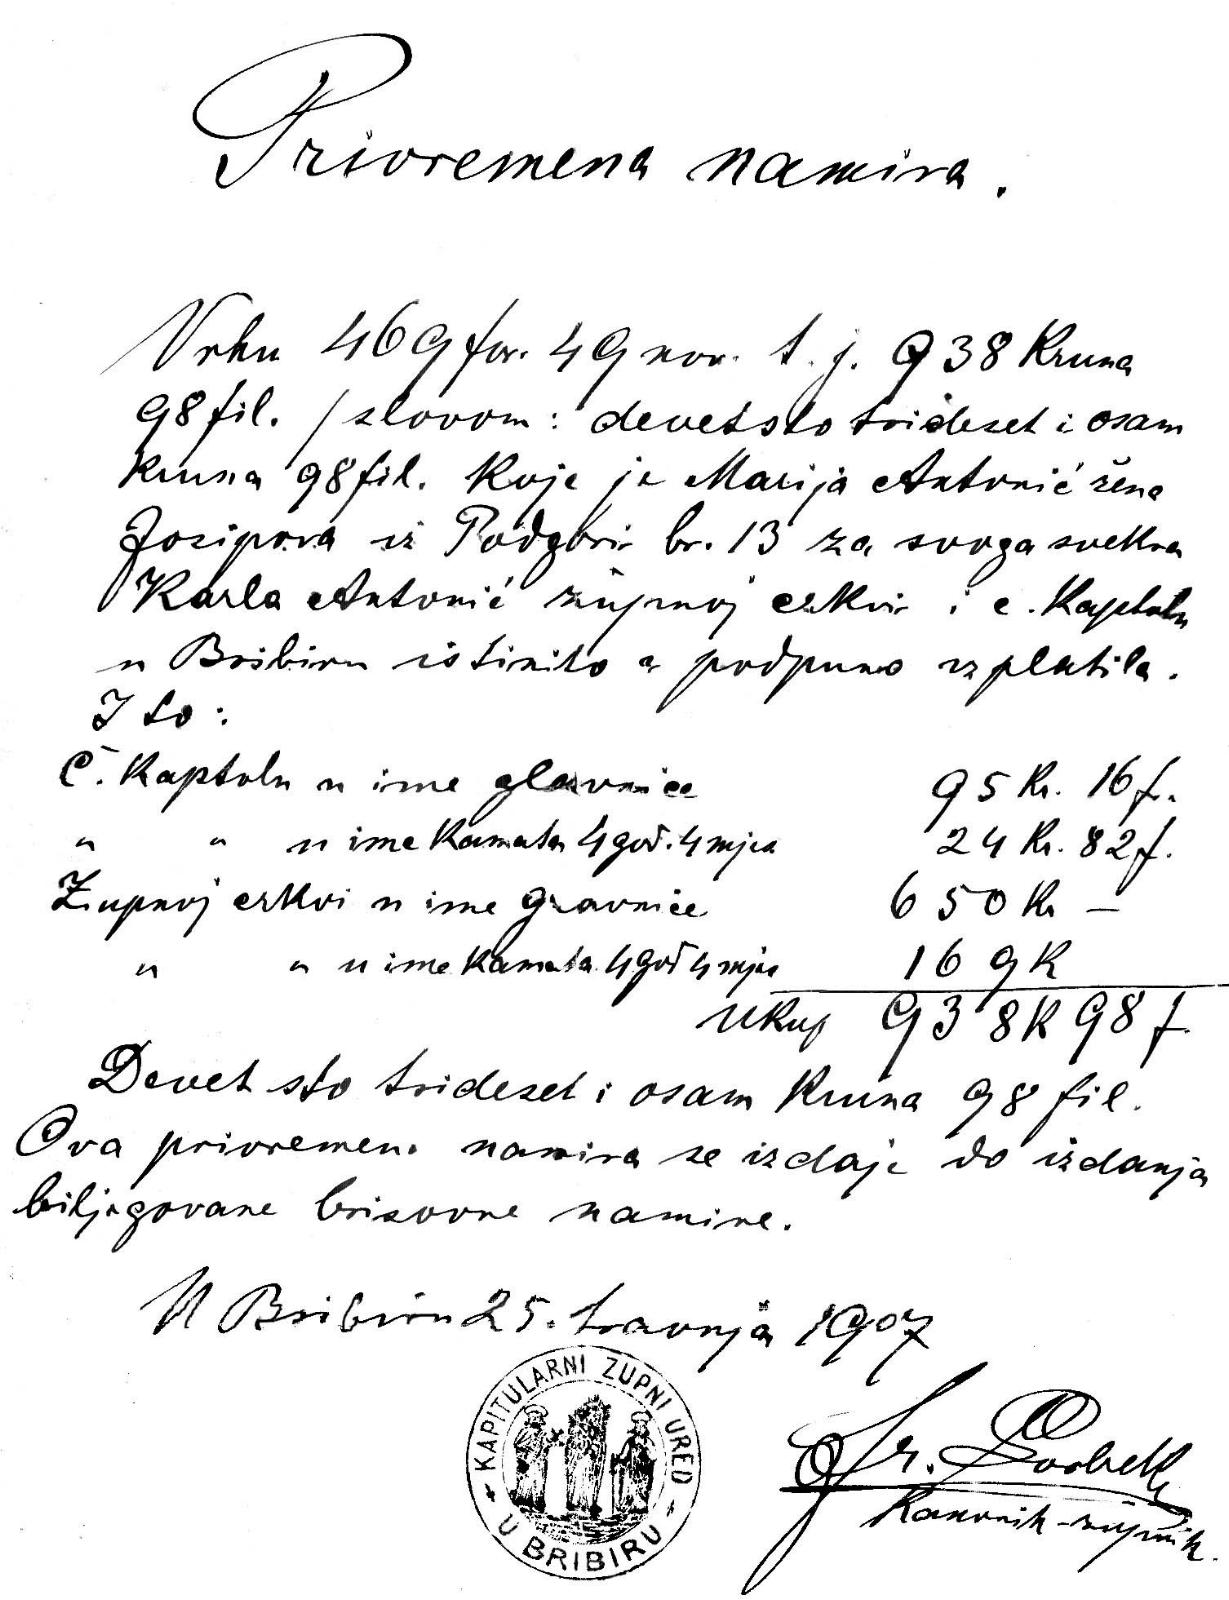 Privremena namira.
Vrhu 469 for. 49 nov. t. j. 938 Kruna
98 fil. / slovom: devetsto trideset i osam
Kruna 98 fil. Koje je Marija Antonić žena
Josipova iz Podgori br. 13 za svoga svekra
Karla Antonić župnoj crkvi i č. Kaptolu
u Bribiru istinito i podpuno izplatila.
I to:
Č. Kaptolu u ime glavnice 95 Kr. 16 f.
" " u ime Kamata 4 god. 4 mjes 24 Kr. 82 f.
Župnoj crkvi u ime gravnice 650 Kr —
" " u ime Kamata 4 god 4 mjes 169 K
Ukup 938 K 98 f.
Devet sto trideset i osam Kruna 98 fil.
Ova privremena namira se izdaje do izdanja
biljegovane brisovne namire.
U Bribiru 25. travnja 1907
KAPITULARNI ZUPNI URED
U BRIBIRU
Fr.
Kanonik-župnik.